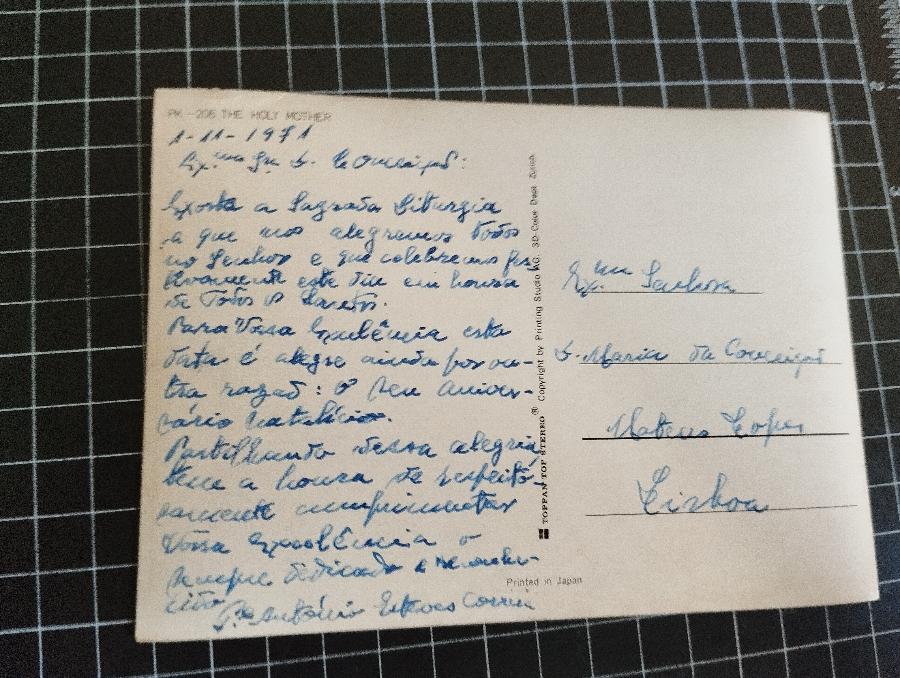 PK-205 THE HOLY MOTHER
1-11-1971
Ex.ma Sr.a D. Conceição:
Exorta a Sagrada Liturgia
a que nos alegremos todos
no Senhor e que celebremos fes-
tivamente este dia em honra
de Todos os Santos.
Para Vossa Excelência esta
data é alegre ainda por ou-
tra razão: o seu aniver-
sário natalício.
Partilhando dessa alegria
tem a honra de respeito-
samente cumprimentar
Vossa Excelência o
sempre dedicado e reconhe-
cido
P.e António Esteves Correia
TOPPAN TOP STEREO® Copyright by Printing Studio AG. 3D-Color Desk Zürich
Ex.ma Senhora
D. Maria da Conceição
Mateus Lopes
Lisboa
Printed in Japan